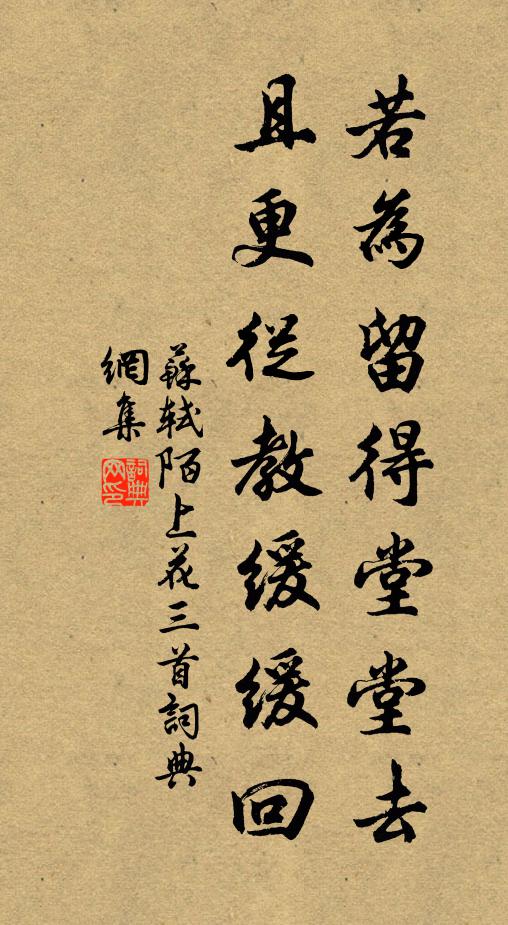 若為留得堂堂去
且更從教緩緩回
蘇軾陌上花三首詞典
網集
詞典
网印